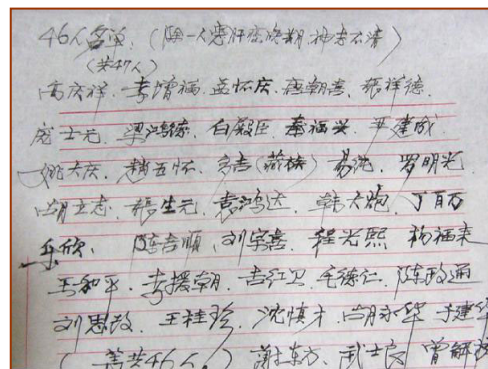 46人名单：(除一人患肝癌晚期，神志不清)
(共47人)
高庆祥．李增福．孟怀庆．唐朝喜．张祥德．
庞士元．梁鸿德．白殿臣．秦福兴．尹建成
姚大庆．赵五怀．(蒋林)．易沅．罗明光．
尚立志．張生元．袁鸿达．韩大炮．丁百万
乐欣．陈吉順．刘宝喜．程光熙．杨福来
王和平．李援朝．吉红卫．毛德仁．陈政通
刘思政．王桂珍．沈慎才．尚永华．于建华
(共46人) 謝东方．武士良．曾解放